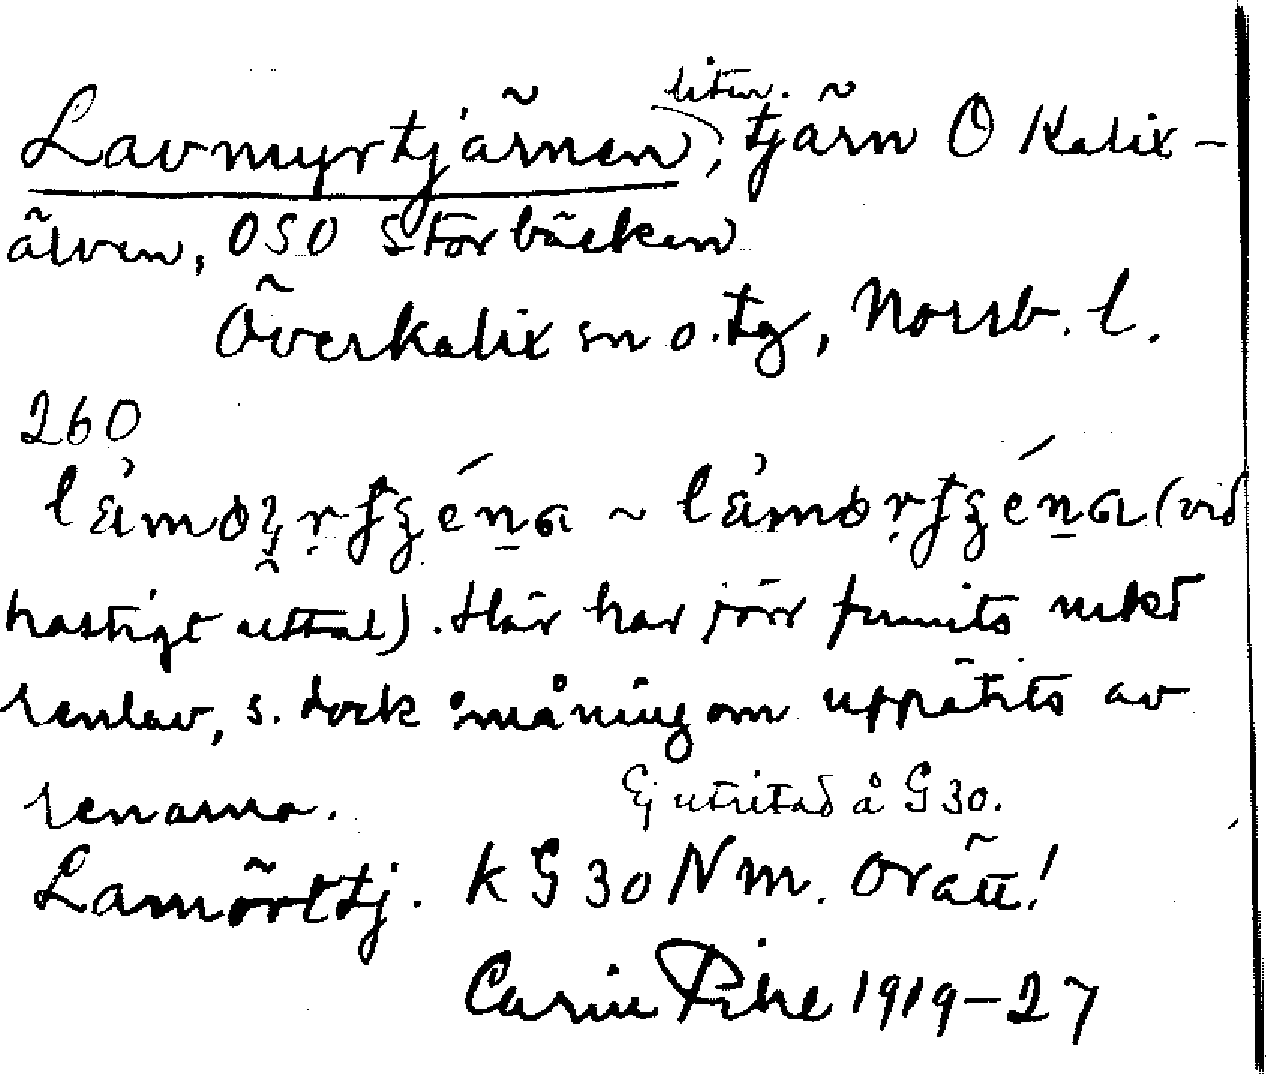 Lavmyrtjärnen, liten tjärn O Kalix-
älven, OSO Storbäcken
Överkalix sn o. tg, Norrb. l.
260
(vid
hastigt uttal). Här har förr funnits mkt
renlav, s. dock småningom uppätits av
renarna.
Ej utritad å G 30.
Lamörttj. k G 30 Nm. Orätt!
Carin Pihl 1919-27